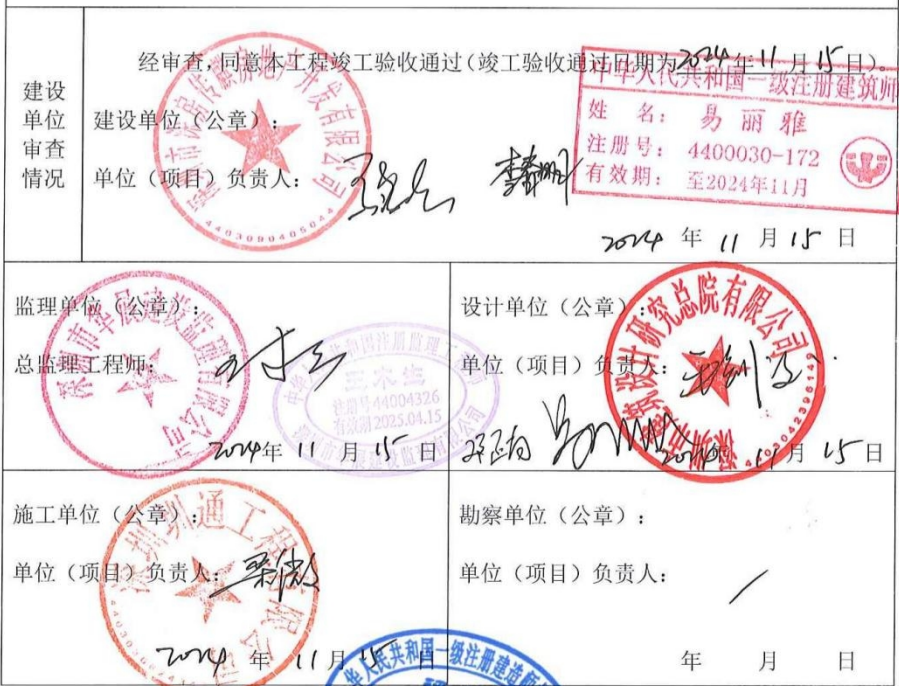 经审查，同意本工程竣工验收通过（竣工验收通过日期为2024年11月15日）。
建设单位审查情况
建设单位（公章）：
单位（项目）负责人：
2024 年 11 月 15 日
中华人民共和国一级注册建筑师
姓 名： 易丽雅
注册号： 4400030-172
有效期： 至2024年11月
4403090405044
监理单位（公章）：
总监理工程师：
2024年 11 月 15 日
深圳市华展建设监理有限公司
王木生
注册号44004326
有效期2025.04.15
设计单位（公章）：
单位（项目）负责人：
2024年 11月 15日
设计研究总院有限公司
施工单位（公章）：
单位（项目）负责人：
2024 年 11月 15 日
勘察单位（公章）：
单位（项目）负责人： /
年 月 日
华人民共和国一级注册建造师